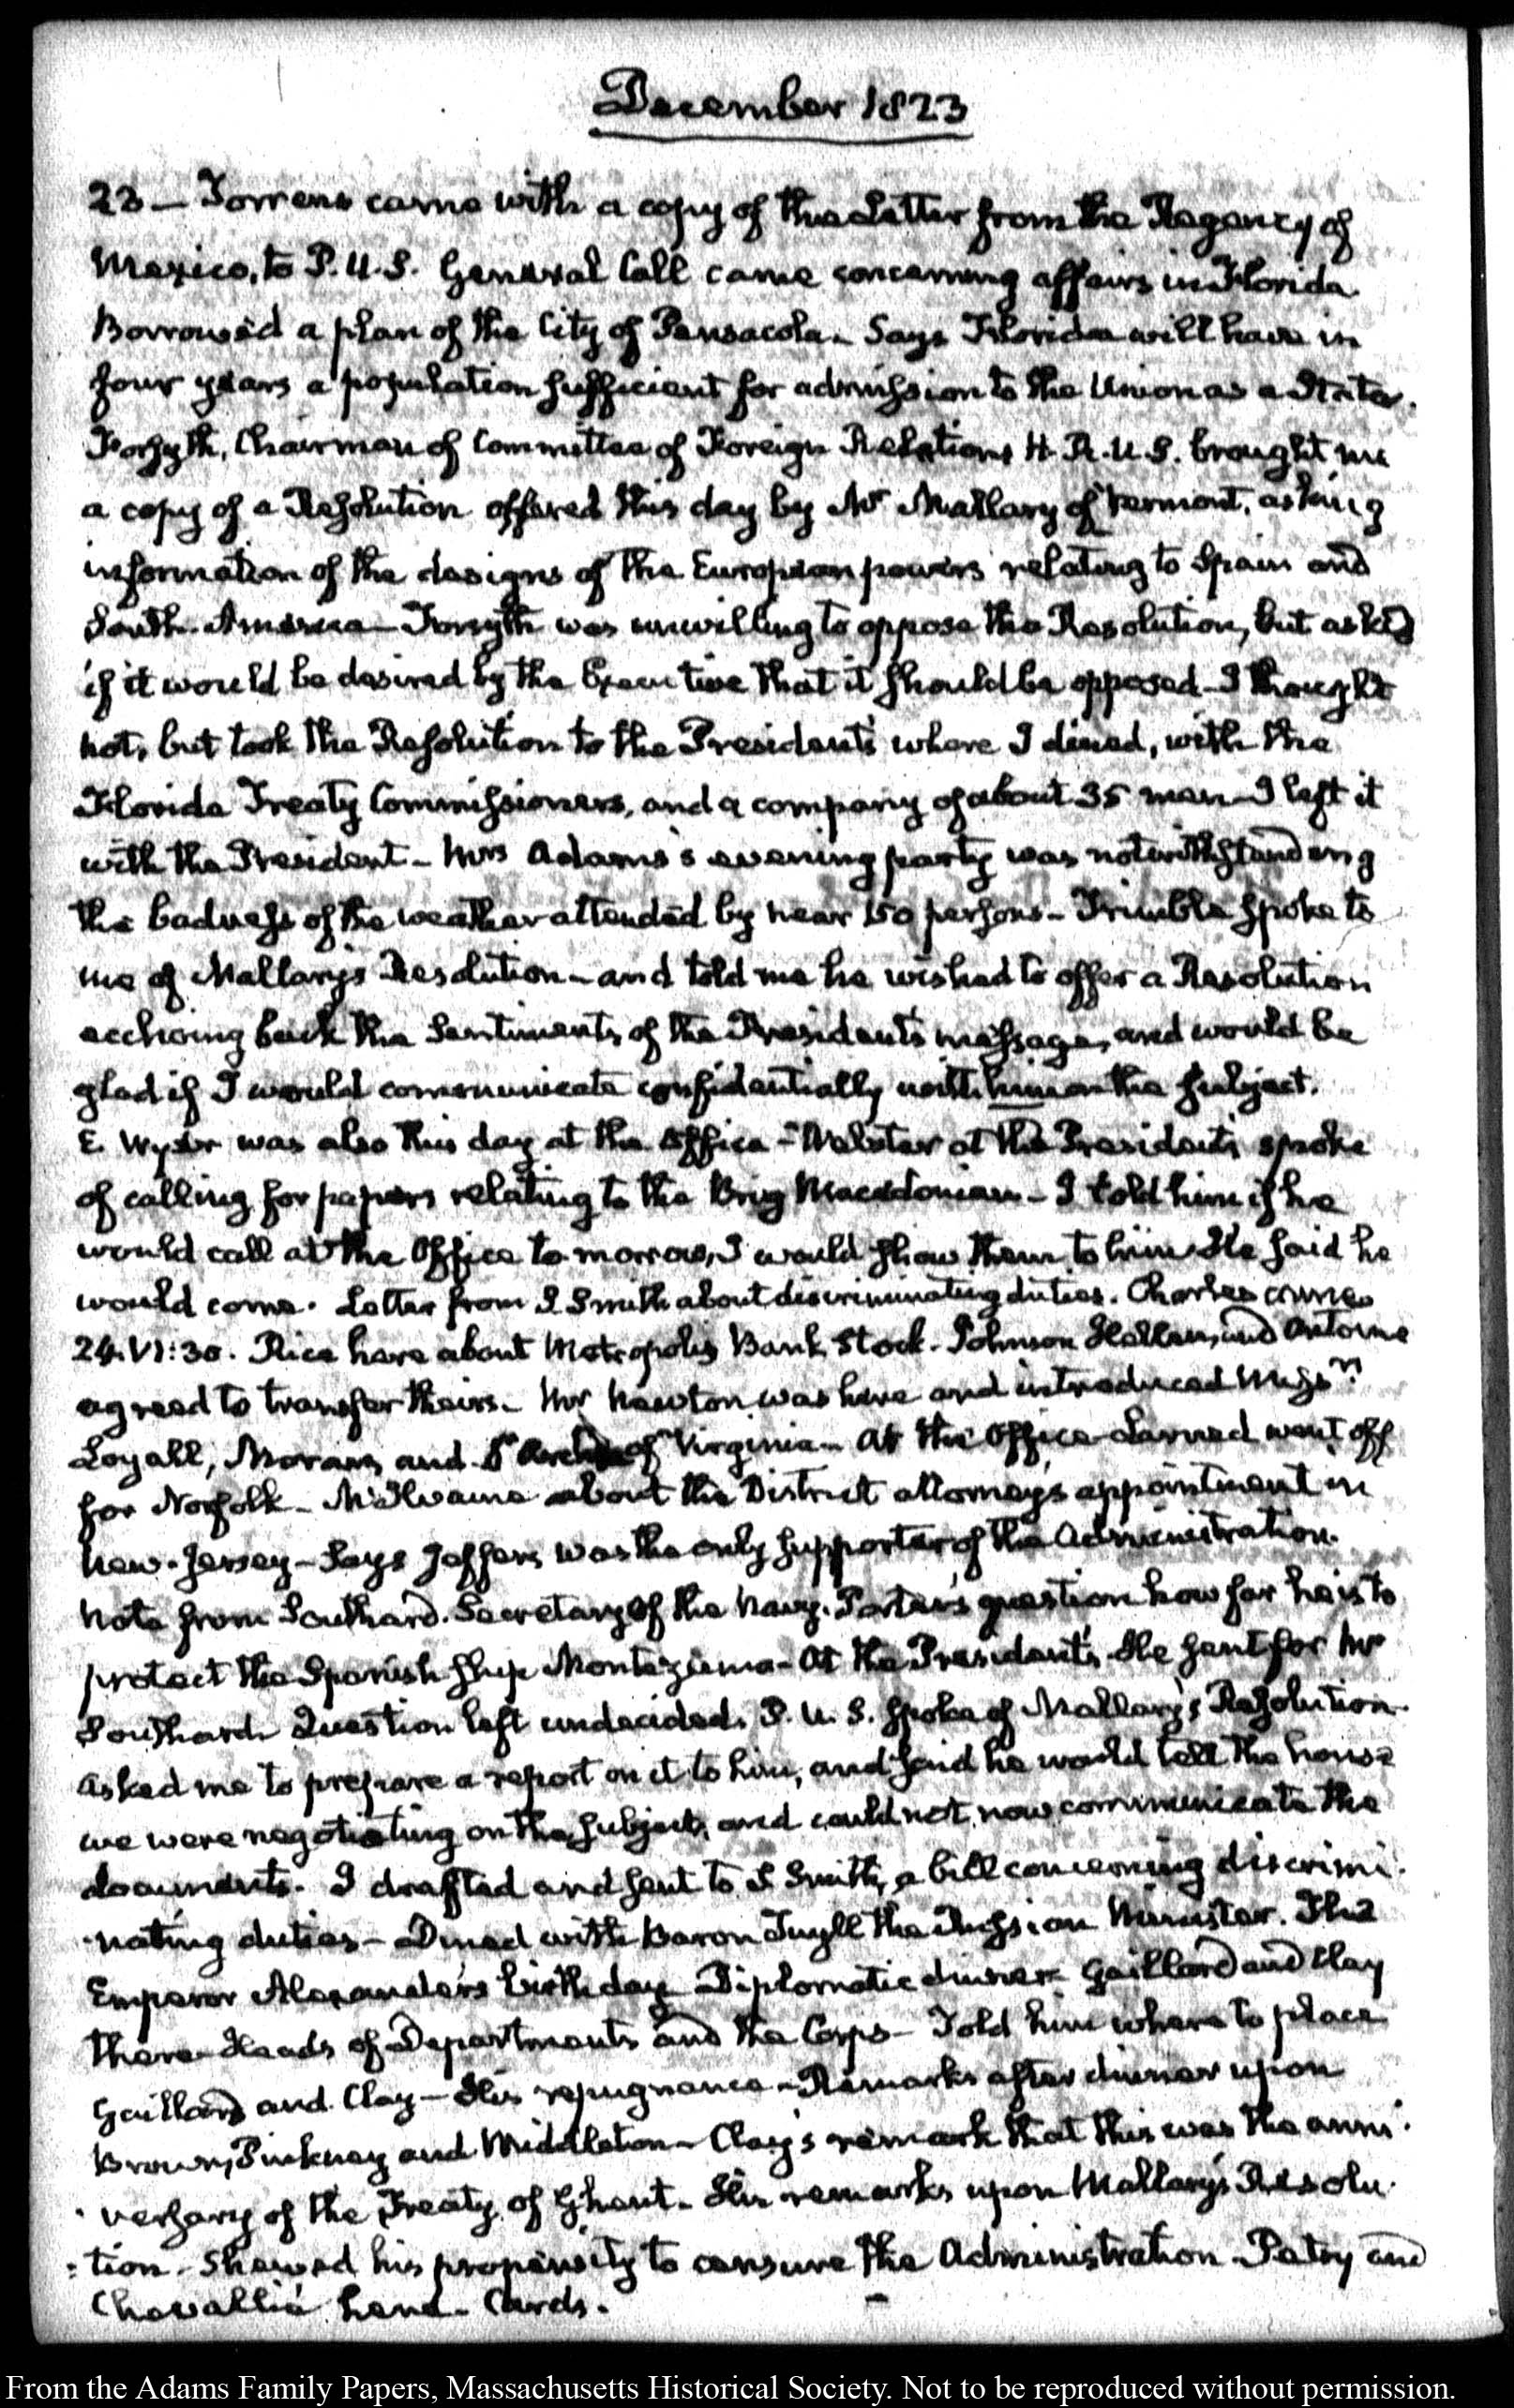 December 1823
23 — Torrens came with a copy of the Letter from the Regency of
Mexico, to P. U. S. General Call came concerning affairs in Florida
Borrowed a plan of the City of Pensacola. Says Florida will have in
four years a population sufficient for admission to the Union as a State.
Forsyth, Chairman of Committee of Foreign Relations H. R. U. S. brought me
a copy of a Resolution offered this day by Mr Mallary of Vermont, asking
information of the designs of the European powers relating to Spain and
South-America — Forsyth was unwilling to oppose the Resolution, but asked
if it would be desired by the Executive that it should be opposed — I thought
not, but took the Resolution to the President's where I dined, with the
Florida Treaty Commissioners, and a company of about 35 men — I left it
with the President — Mrs Adams's evening party was notwithstanding
the badness of the weather attended by near 150 persons — Trimble spoke to
me of Mallary's Resolution — and told me he wished to offer a Resolution
echoing back the Sentiments of the President's message, and would be
glad if I would communicate confidentially with him on the subject.
E. Wyer was also this day at the Office — Webster at the President's spoke
of calling for papers relating to the Brig Macedonian — I told him if he
would call at the Office to-morrow, I would show them to him. He said he
would come. Letter from S. Smith about discriminating duties. Charles came
24. VI:30. Rice here about Metropolis Bank Stock. Johnson Hellen, and Antoine
agreed to transfer theirs. Mr Newton was here and introduced Messrs
Loyall, and of Virginia — At the Office Larned went off
for Norfolk — McIlvaine about the District attorney's appointment in
New-Jersey — Says Jeffers was the only supporter of the Administration.
Note from Southard. Secretary of the Navy. Porter's question how far he is to
protect the Spanish ship Montezuma — At the President's. He sent for Mr
Southard. Question left undecided. P. U. S. spoke of Mallary's Resolution.
asked me to prepare a report on it to him, and said he would tell the house
we were negotiating on the subject, and could not now communicate the
documents. I drafted and sent to S. Smith, a bill concerning discrimi-
-nating duties — Dined with Baron Tuyll the Russian Minister. The
Emperor Alexander's birth day Diplomatic dinner — Gaillard and Clay
there — Heads of Departments and the Corps — Told him where to place
Gaillard and Clay — His repugnance — Remarks after dinner upon
Brown, Pinkney and Middleton — Clay's remark that this was the anni-
-versary of the Treaty of Ghent. His remarks upon Mallary's Resolu-
-tion — Shewed his propensity to censure the Administration — Petry and
Chevallié here. Cards.
From the Adams Family Papers, Massachusetts Historical Society. Not to be reproduced without permission.